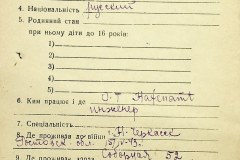 4. Національність русский
5. Родинний стан
при ньому діти до 16 років:
1)
2)
3)
4)
5)
6. Ким працює і де
инженер
7. Спеціяльність
8. Де проживав до війни г. Н. Черкасск
Ростовск. обл.
9. Де проживає зараз Соборная 52